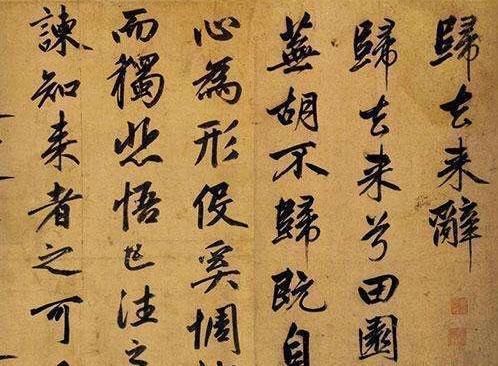 歸去来辭
歸去来兮田園
蕪胡不歸既自
心為形役奚惆
而獨悲悟已往之
諫知来者之可